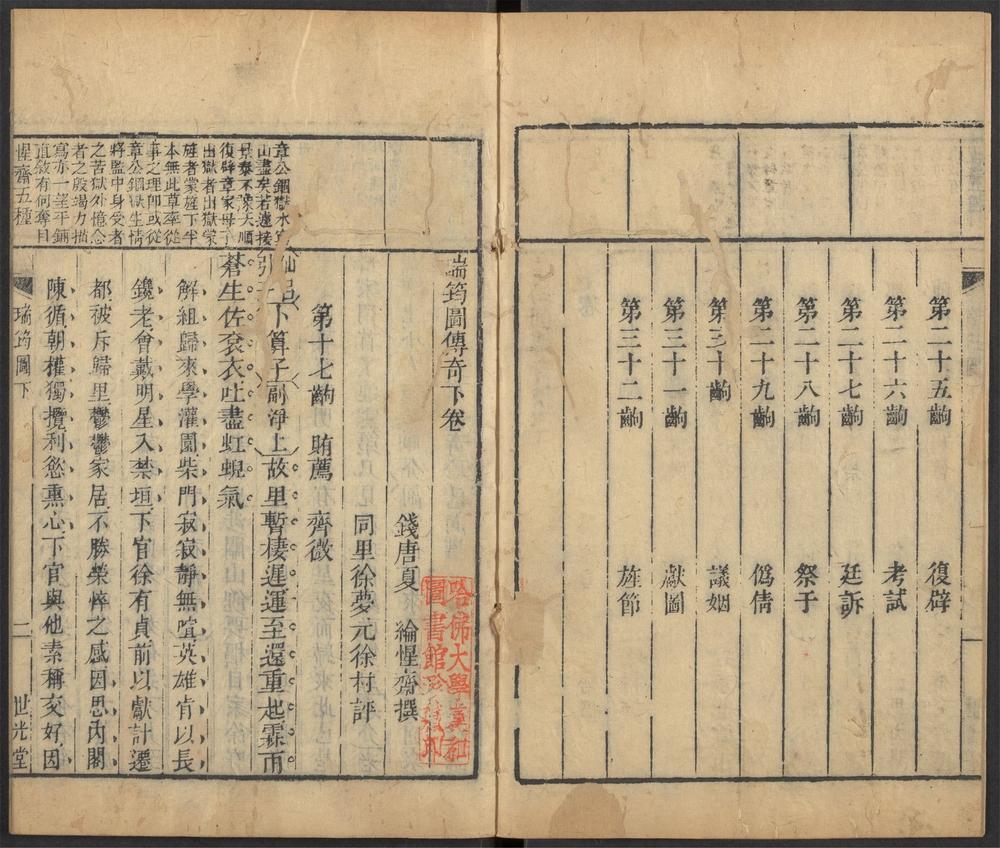 第二十五齣　復辟
第二十六齣　考試
第二十七齣　廷訴
第二十八齣　祭于
第二十九齣　僞倩
第三十齣　議姻
第三十一齣　獻圖
第三十二齣　旌節
瑞筠圖傳奇下卷
錢唐夏　綸惺齋撰
同里徐夢元徐村評
第十七齣　賄薦　齊微
仙呂引子
卜算子
副淨上
故里暫棲遲運至還重起霖雨
蒼生佐衮衣吐盡虹蜺氣
解組歸來學灌園柴門寂寂靜無喧英雄肯以長
鑱老會戴明星入禁垣下官徐有貞前以獻計遷
都被斥歸里鬱鬱家居不勝榮悴之感因思內閣
陳循朝權獨攬利慾熏心下官與他素稱交好因
章公錮獄水窮
山盡矣若遽接
景泰不豫天順
復辟章家母子
出獄者出獄蒙
旌者蒙旌下半
本無此草率從
事之理卽或從
章公錮獄生情
將監中身受者
之苦獄外憶念
者之殷竭力描
寫亦一望平鋪
直敘有何奪目
惺齋五種
瑞筠圖下
二
世光堂
哈佛大學漢和
圖書館珍藏印